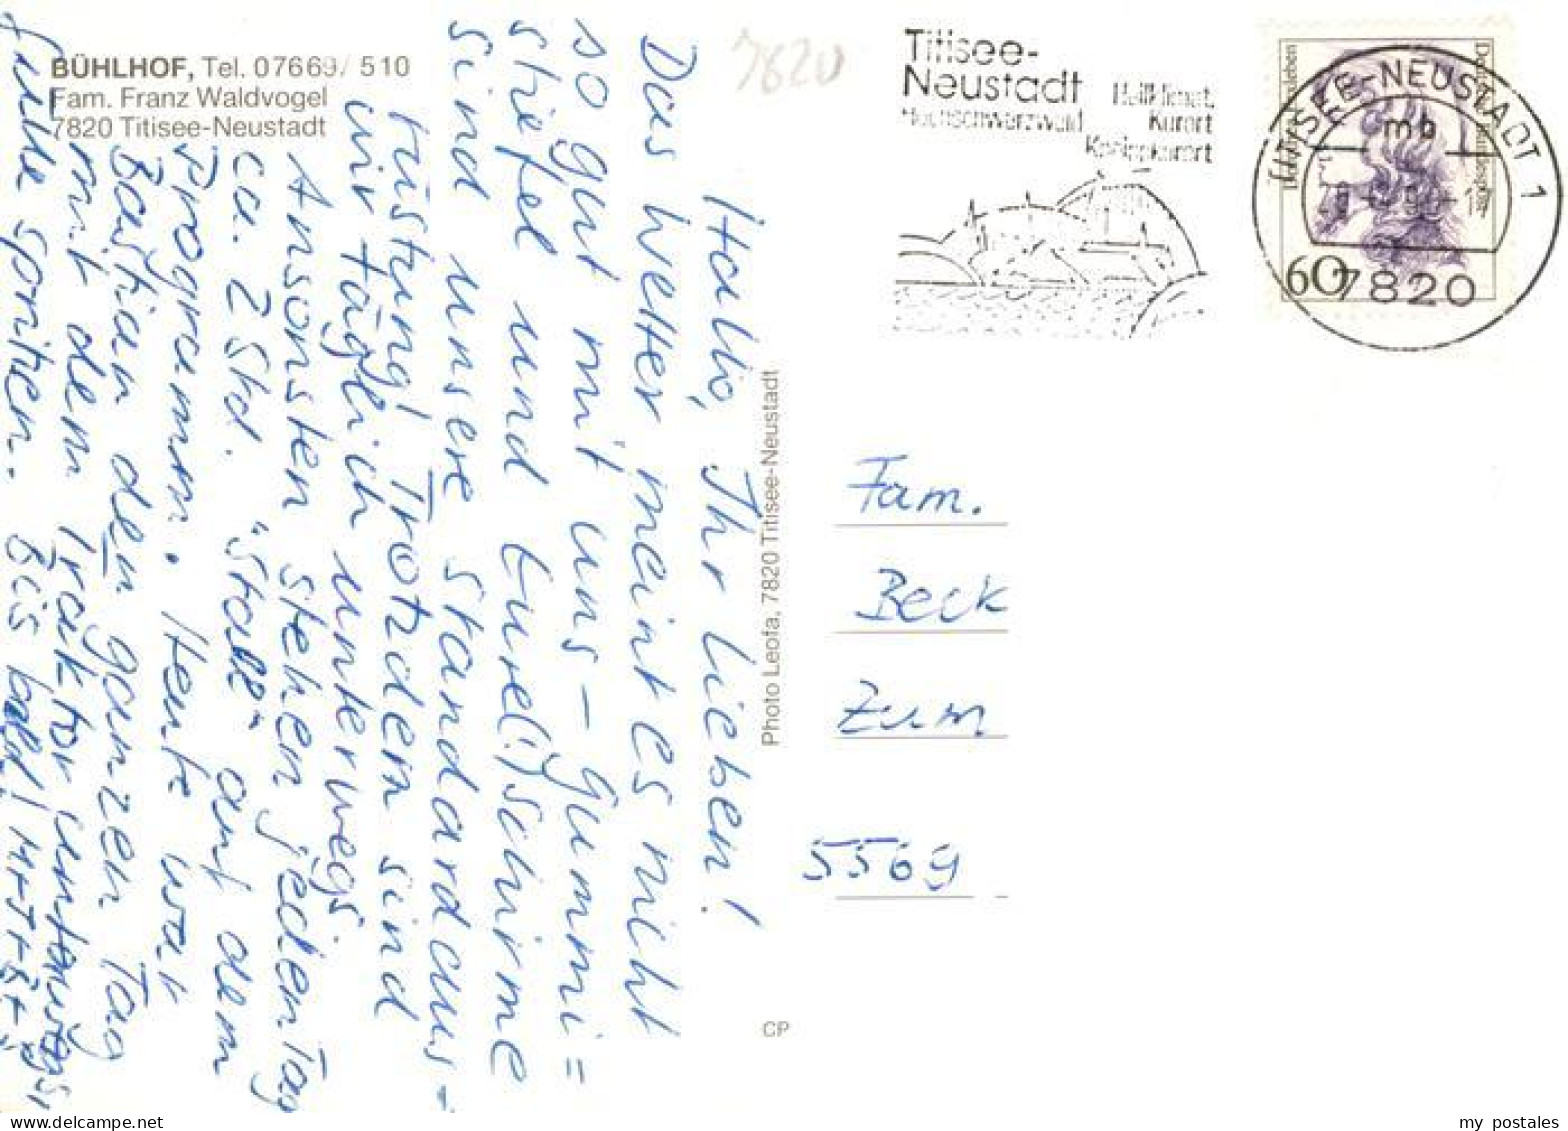 BÜHLHOF, Tel. 07669/ 510
Fam. Franz Waldvogel
7820 Titisee-Neustadt
7820
Titisee-
Neustadt
Hochschwarzwald
Heilklimat.
Kurort
Kneippkurort
Deutsche Bundespost
60
TITISEE-NEUSTADT 1
mb
7820
Hallo, Ihr Lieben!
Das Wetter meint es nicht
so gut mit uns - Gummi=
stiefel und Eure(!) Schirme
sind unsere Standardaus-
rüstung! Trotzdem sind
wir täglich unterwegs.
Ansonsten stehen jeden Tag
ca. 2 Std. "Stall" auf dem
Programm. Heute war
Bastian den ganzen Tag
mit dem Traktor unterwegs,
Gülle spritzen. Bis bald!
Photo Leofa, 7820 Titisee-Neustadt
CP
Fam.
Beck
Zum
5569
my postales